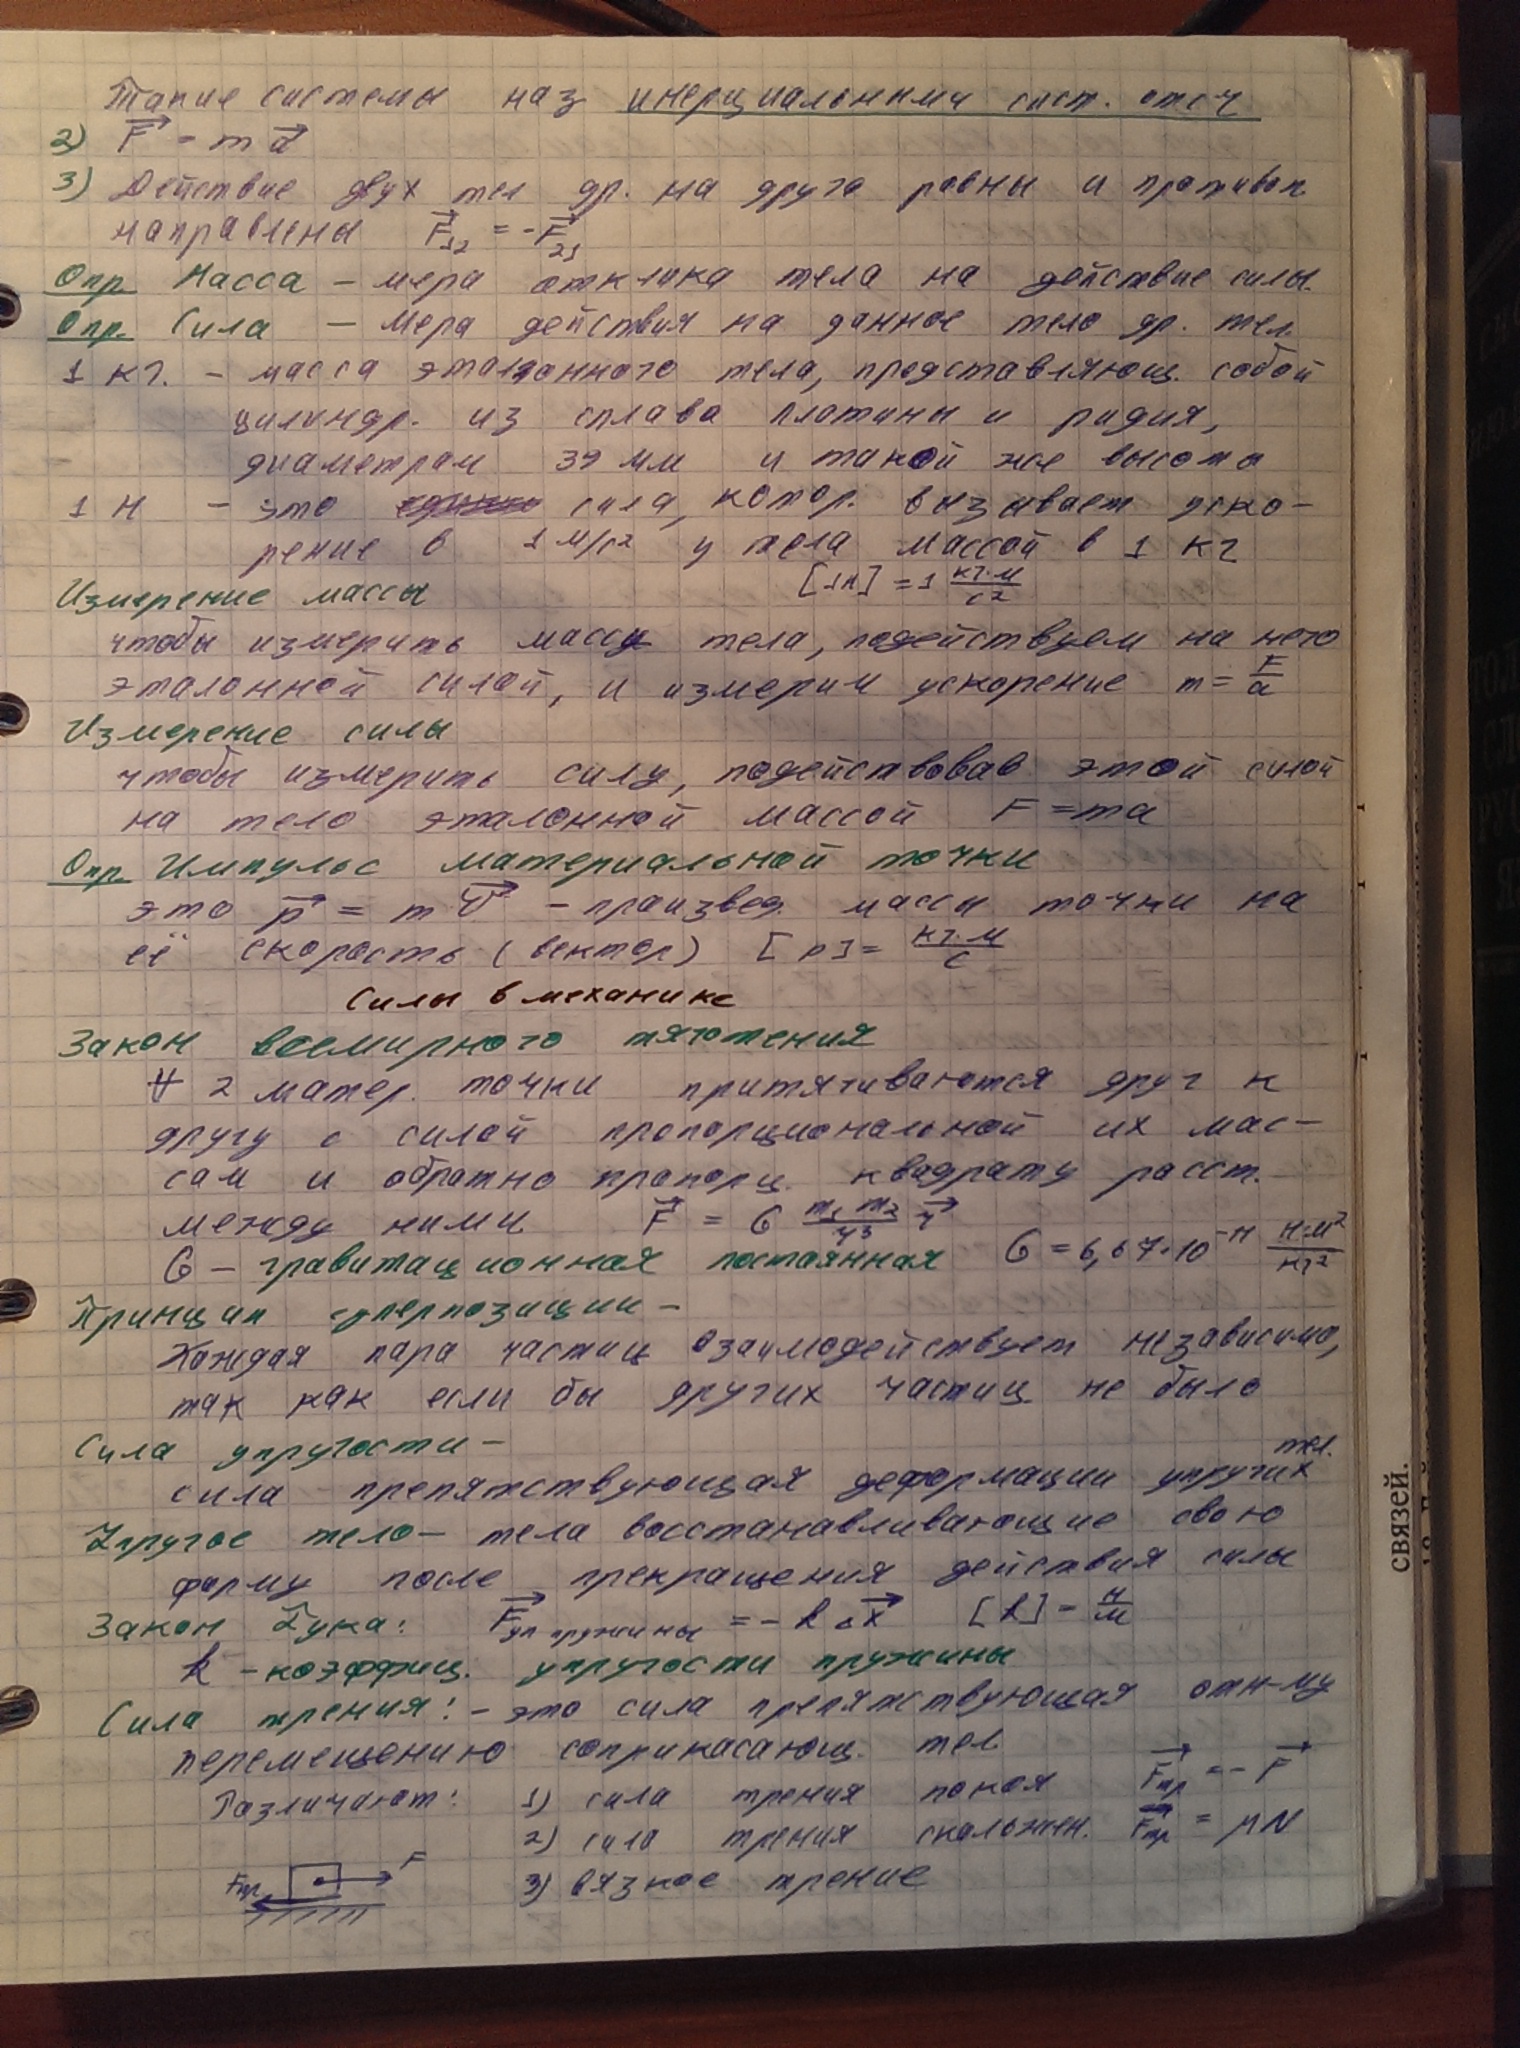 Такие системы наз инерциальными сист. отсч
2) F = m a
3) Действие двух тел др. на друга равны и противоп.
направлены F₁₂ = -F₂₁
Опр. Масса – мера отклика тела на действие силы.
Опр. Сила – Мера действия на данное тело др. тел.
1 кг. – масса эталонного тела, представляющ. собой
цилиндр. из сплава платины и ридия,
диаметрам 39 мм и такой же высоты
1 Н – это сила, котор. вызывает уско-
рение в 1 м/с² у тела массой в 1 кг
[1Н] = 1 кг·м/с²
Измерение массы
чтобы измерить массу тела, подействуем на него
эталонной силой, и измерим ускорение m = F/a
Измерение силы
чтобы измерить силу, подействовав этой силой
на тело эталонной массой F = ma
Опр. Импульс материальной точки
это p = m v – произвед. массы точки на
её скорость (вектор) [p] = кг·м/с
Силы в механике
Закон всемирного тяготения
∀ 2 матер. точки притягиваются друг к
другу с силой пропорциональной их мас-
сам и обратно пропорц. квадрату расст.
между ними F = G m₁ m₂/r³ r
G – гравитационная постоянная G = 6,67·10⁻¹¹ Н·м²/кг²
Принцип суперпозиции –
Каждая пара частиц взаимодействует независимо,
так как если бы других частиц не было
Сила упругости –
сила препятствующая деформации упругих тел.
Упругое тело – тела восстанавливающие свою
форму после прекращения действия силы
Закон Гука: F уп пружины = - k Δx [k] = Н/м
k – коэффиц. упругости пружины
Сила трения: – это сила препятствующая отн-му
перемещению соприкасающ. тел
Различают: 1) сила трения покоя Fтр = - F
2) сила трения скольжен. Fтр = μN
3) вязкое трение
Fтр F
связей.